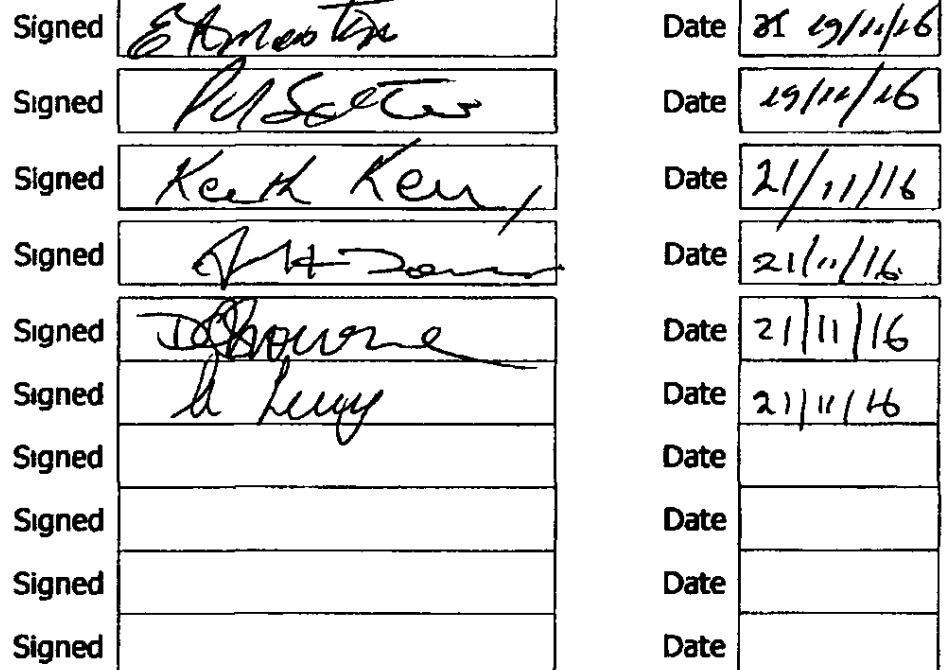 Signed Date 19/11/16
Signed Date 19/11/16
Signed Keith Kerry Date 21/11/16
Signed Date 21/11/16
Signed Date 21/11/16
Signed Date 21/11/16
Signed Date
Signed Date
Signed Date
Signed Date